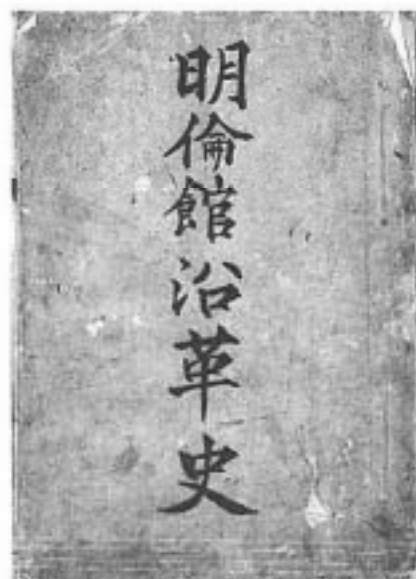 明倫館沿革史